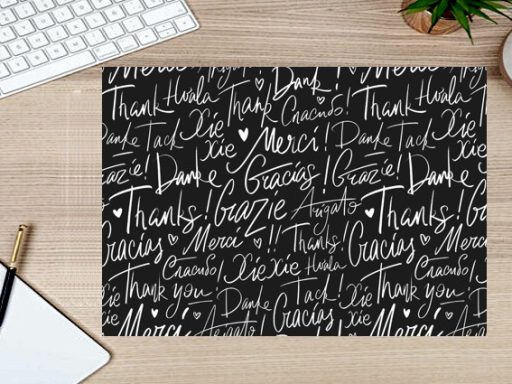 Merci Arigato Danke
Thank Hvala Thank Спасибо!
Danke Tack XieXie Merci! Danke Tack XieXie
Grazie! Danke Gracias! Grazie! Danke
Thanks! Grazie Arigato Thanks!
Gracias Merci!! Thanks! Gracias Merci
Спасибо! XieXie Hvala Спасибо!
Thank you! Danke Tack! Thank you!
Merci Arigato Gracias XieXie Merci